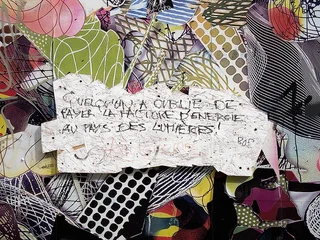 QUELQU'UN A OUBLIÉ DE
PAYER LA FACTURE D'ENERGIE
AU PAYS DES LUMIÈRES!